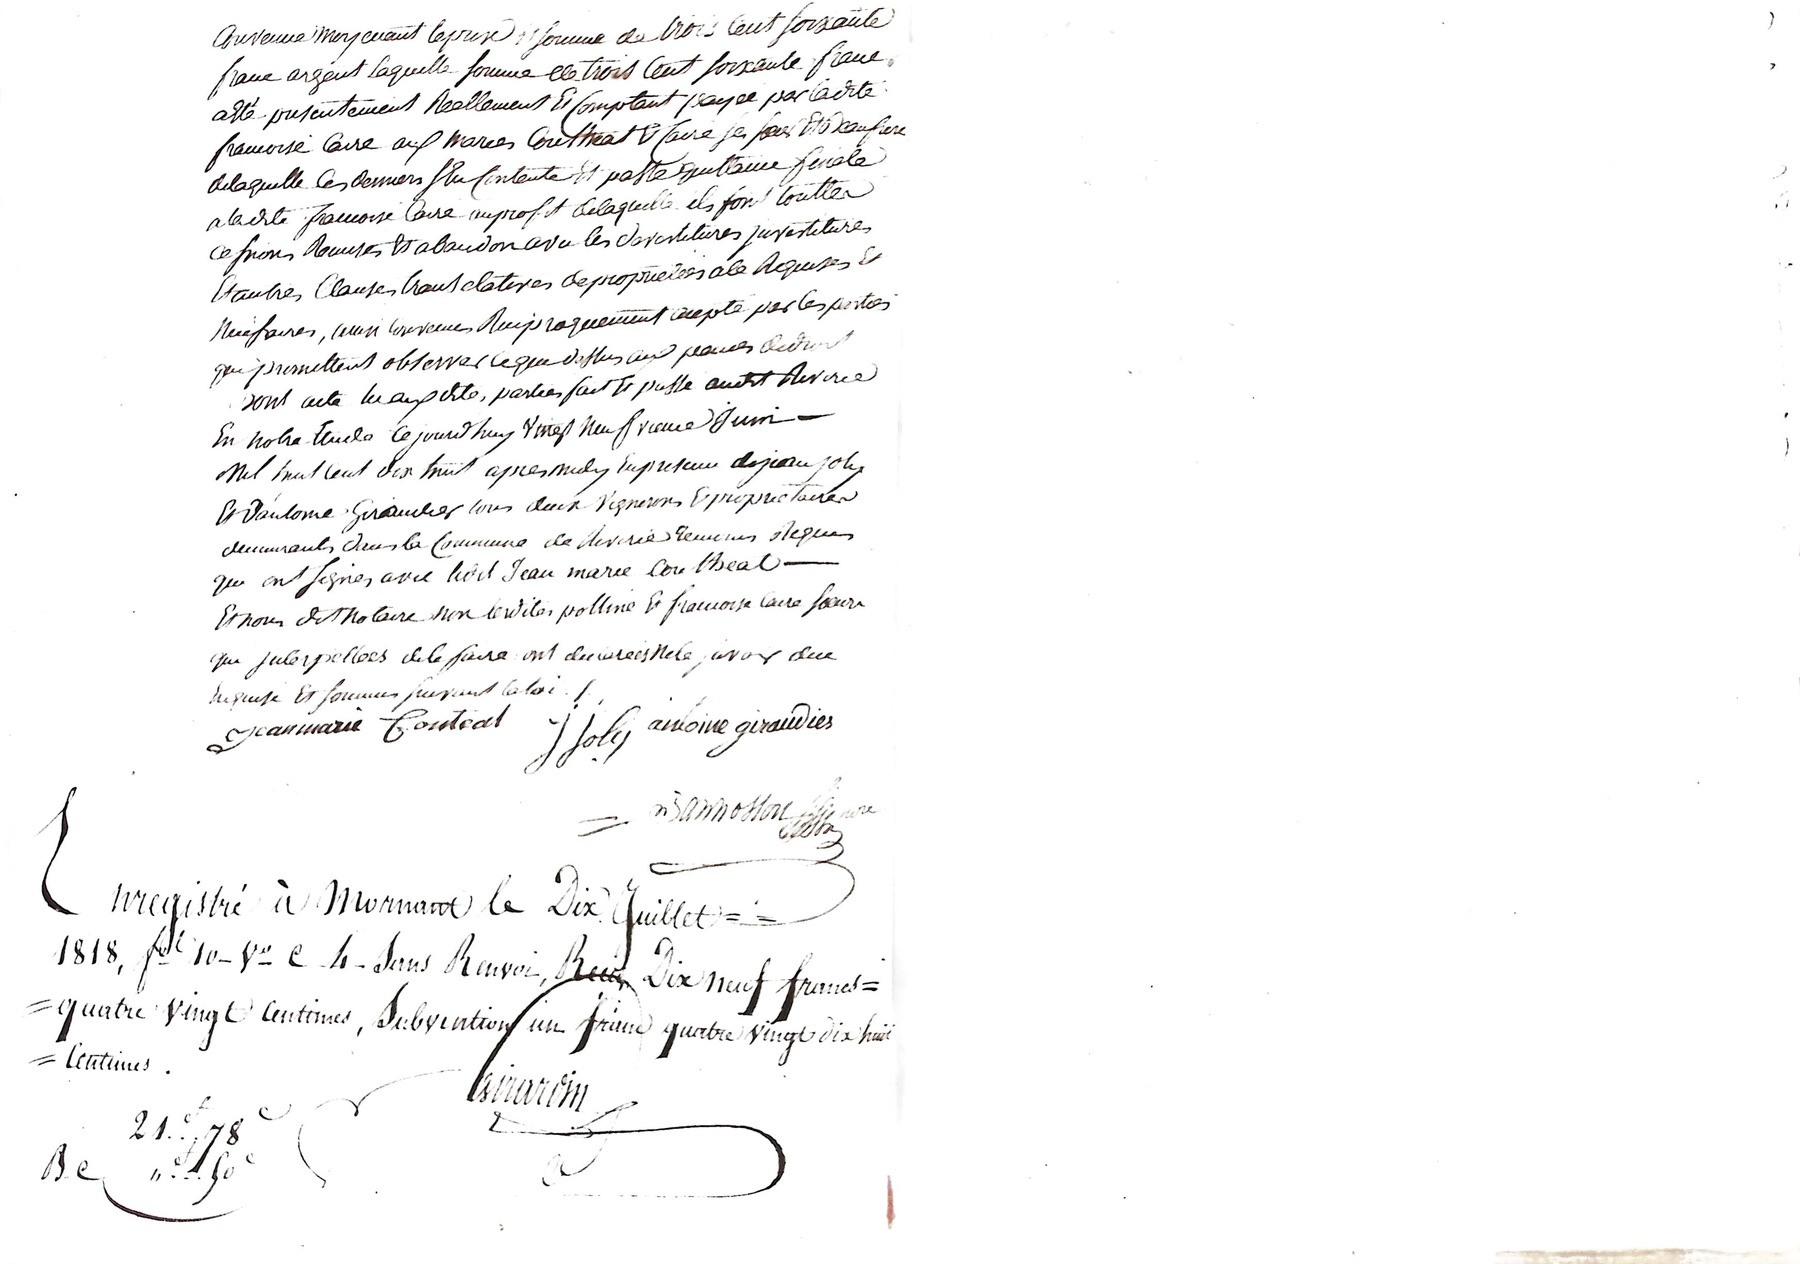 Convenue moyenant le prix et somme de trois cent soixante
franc argent laquelle somme de trois cent soixante franc
a été presentement Reellement Et Comptant payée par ladite
francoise Caire aux maries Coutheal Et Caire ses sœur Et beaufrere
delaquelle Ces derniers sEn Contente Et passe quittance finale
a ladite francoise Caire auprofit delaquelle ils font touttes
Cessions Remises Et abandon avec les devestitures investitures
Et autres Clauses translatives de proprietées a ce Requises Et
necessaires, ainsi convenus Reciproquement accepté par les parties
qui promettent observer ce que dessus aux peines de droit
dont acte lu aux dites parties fait Et passé audit Riverie
En notre Etude Cejourdhuy Vingt neufvieme Juin
mil huit cent dix huit apres midy En presence de jean joly
Et d'antoine Giraudier tous deux vignerons Et proprietaires
demeurants dans la Commune de Riverie temoins Requis
qui ont signés avec ledit Jean marie Coutheal
Et nous dit notaire non lesdites polline Et francoise Caire sœurs
qui interpellées de le faire ont declarées ne le savoir due
Enquise Et sommes suivant la loi ./.
Jeanmarie Conteal J Joly antoine giraudier

Enregistré à Mornant le Dix Juillet
1818, fol 10 Vo C 4 Sans Renvoi, Reçu Dix neuf francs
quatre vingt Centimes, Subvention un franc quatre vingt dix huit
Centimes.
Girardin
21.f 78c
B.C " f. 50c